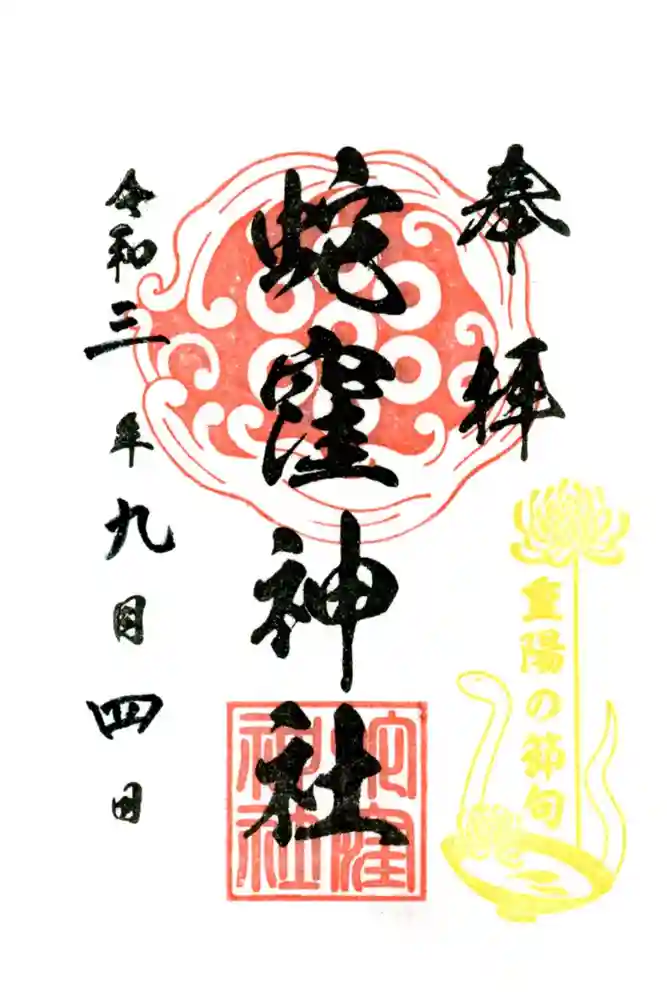 奉拝
重陽の節句
蛇窪神社
蛇窪
神社
令和三年九月四日